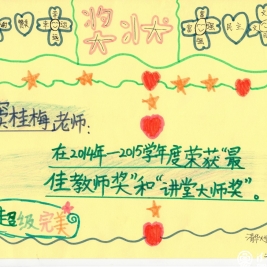 奖状
窦桂梅老师:
在2014年—2015学年度荣获“最
佳教师奖”和“讲堂大师奖”。
超级完美